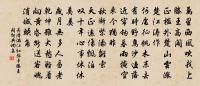 萬里西風吹我上
滕王高閣正檻
外楚山雲漲
楚江濤作何
處征帆木末去
有時野鳥沙
邊落近簾鉤暮
雨掩空來今猶昨
秋漸緊添離索
天正遠傷飄泊
歎十年心事休休
莫莫歲月無多人易老
乾坤雖大愁難著
向黃昏斷送客魂
銷城頭角